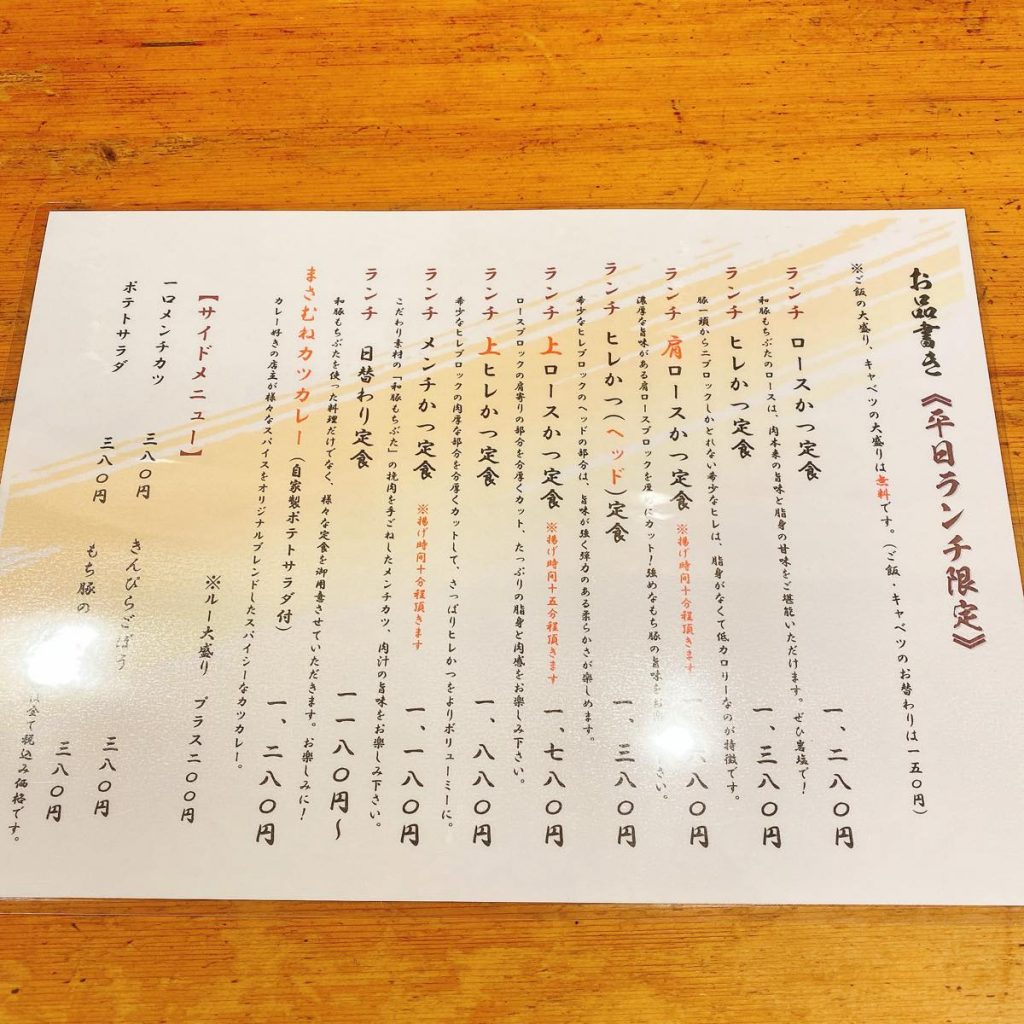 お品書き《平日ランチ限定》
※ご飯の大盛り、キャベツの大盛りは無料です。(ご飯・キャベツのお替わりは一五〇円)
ランチ ロースかつ定食 一、二八〇円
和豚もちぶたのロースは、肉本来の旨味と脂身の甘味をご堪能いただけます。ぜひ岩塩で!
ランチ ヒレかつ定食 一、三八〇円
豚一頭から二ブロックしかとれない希少なヒレは、脂身がなくて低カロリーなのが特徴です。
ランチ 肩ロースかつ定食 ※揚げ時間十分程頂きます 八〇円
濃厚な旨味がある肩ロースブロックを厚めにカット!強めなもち豚の旨味をお さい。
ランチ ヒレかつ(ヘッド)定食 一、三八〇円
希少なヒレブロックのヘッドの部分は、旨味が強く弾力のある柔らかさが楽しめます。
ランチ 上ロースかつ定食 ※揚げ時間十五分程頂きます 一、七八〇円
ロースブロックの肩寄りの部分を分厚くカット、たっぷりの脂身と肉感をお楽しみ下さい。
ランチ 上ヒレかつ定食 一、八八〇円
希少なヒレブロックの肉厚な部分を分厚くカットして、さっぱりヒレかつをよりボリューミーに。
ランチ メンチかつ定食 ※揚げ時間十分程頂きます 一、一八〇円
こだわり素材の「和豚もちぶた」の挽肉を手ごねしたメンチカツ、肉汁の旨味をお楽しみ下さい。
ランチ 日替わり定食 一一八〇円~
和豚もちぶたを使った料理だけでなく、様々な定食を御用意させていただきます。お楽しみに!
まさむねカツカレー(自家製ポテトサラダ付) 一、二八〇円
カレー好きの店主が様々なスパイスをオリジナルブレンドしたスパイシーなカツカレー。
※ルー大盛り プラス二〇〇円
【サイドメニュー】
一口メンチカツ 三八〇円 きんぴらごぼう 三八〇円
ポテトサラダ 三八〇円 もち豚の 三八〇円
は全て税込み価格です。